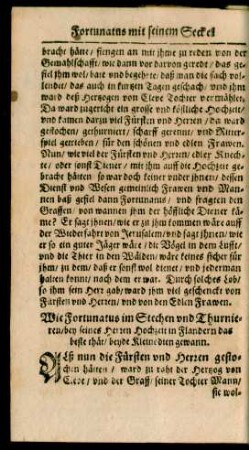 Fortunatus mit seinem Seckel
bracht hätte / fiengen an mit jhme zu reden von der
Gemahlschafft / wie dann vor darvon geredt / das ge-
fiel jhm wol / bate und begehrte / daß man die sach vol-
lendet / das auch in kurtzen Tagen geschach / und jhm
ward deß Hertzogen von Cleve Tochter vermählet /
Da ward zugericht ein grosse und köstliche Hochzeit /
und kamen darzu viel Fürsten und Herren / da ward
gestochen / gethurniert / scharff gerennt / und Ritter-
spiel getrieben / für den schönen und edlen Frawen.
Nun / wie viel der Fürsten und Herren / edler Knech-
te / oder sonst Diener / mit jhm auff die Hochzeit ge-
bracht hätten / so war doch keiner under jhnen / dessen
Dienst und Wesen gemeinlich Frawen und Man-
nen baß gefiel dann Fortunatus / und fragten den
Graffen / von wannen jhm der höffliche Diener kä-
me? Er sagt jhnen / wie er zu jhm kommen wäre auff
der Widerfahrt von Jerusalem / und sagt jhnen / wie
er so ein guter Jäger wäre / die Vögel in dem Luffte /
und die Thier in den Wälden / wäre keines sicher für
jhm / zu dem / daß er sonst wol dienet / und jederman
halten konnt / nach dem er war. Durch solches Lob /
so jhm sein Herr gab / ward jhm viel geschenckt von
Fürsten und Herren / und von den Edlen Frawen.
Wie Fortunatus im Stechen und Thurnie-
ren / bey seines Herren Hochzeit in Flandern das
beste thät / beyde Kleinodien gewann.
ALß nun die Fürsten und Herren gesto-
chen hätten / ward zu raht der Hertzog von
Cleve / und der Graff / seiner Tochter Mann /
sie wol-